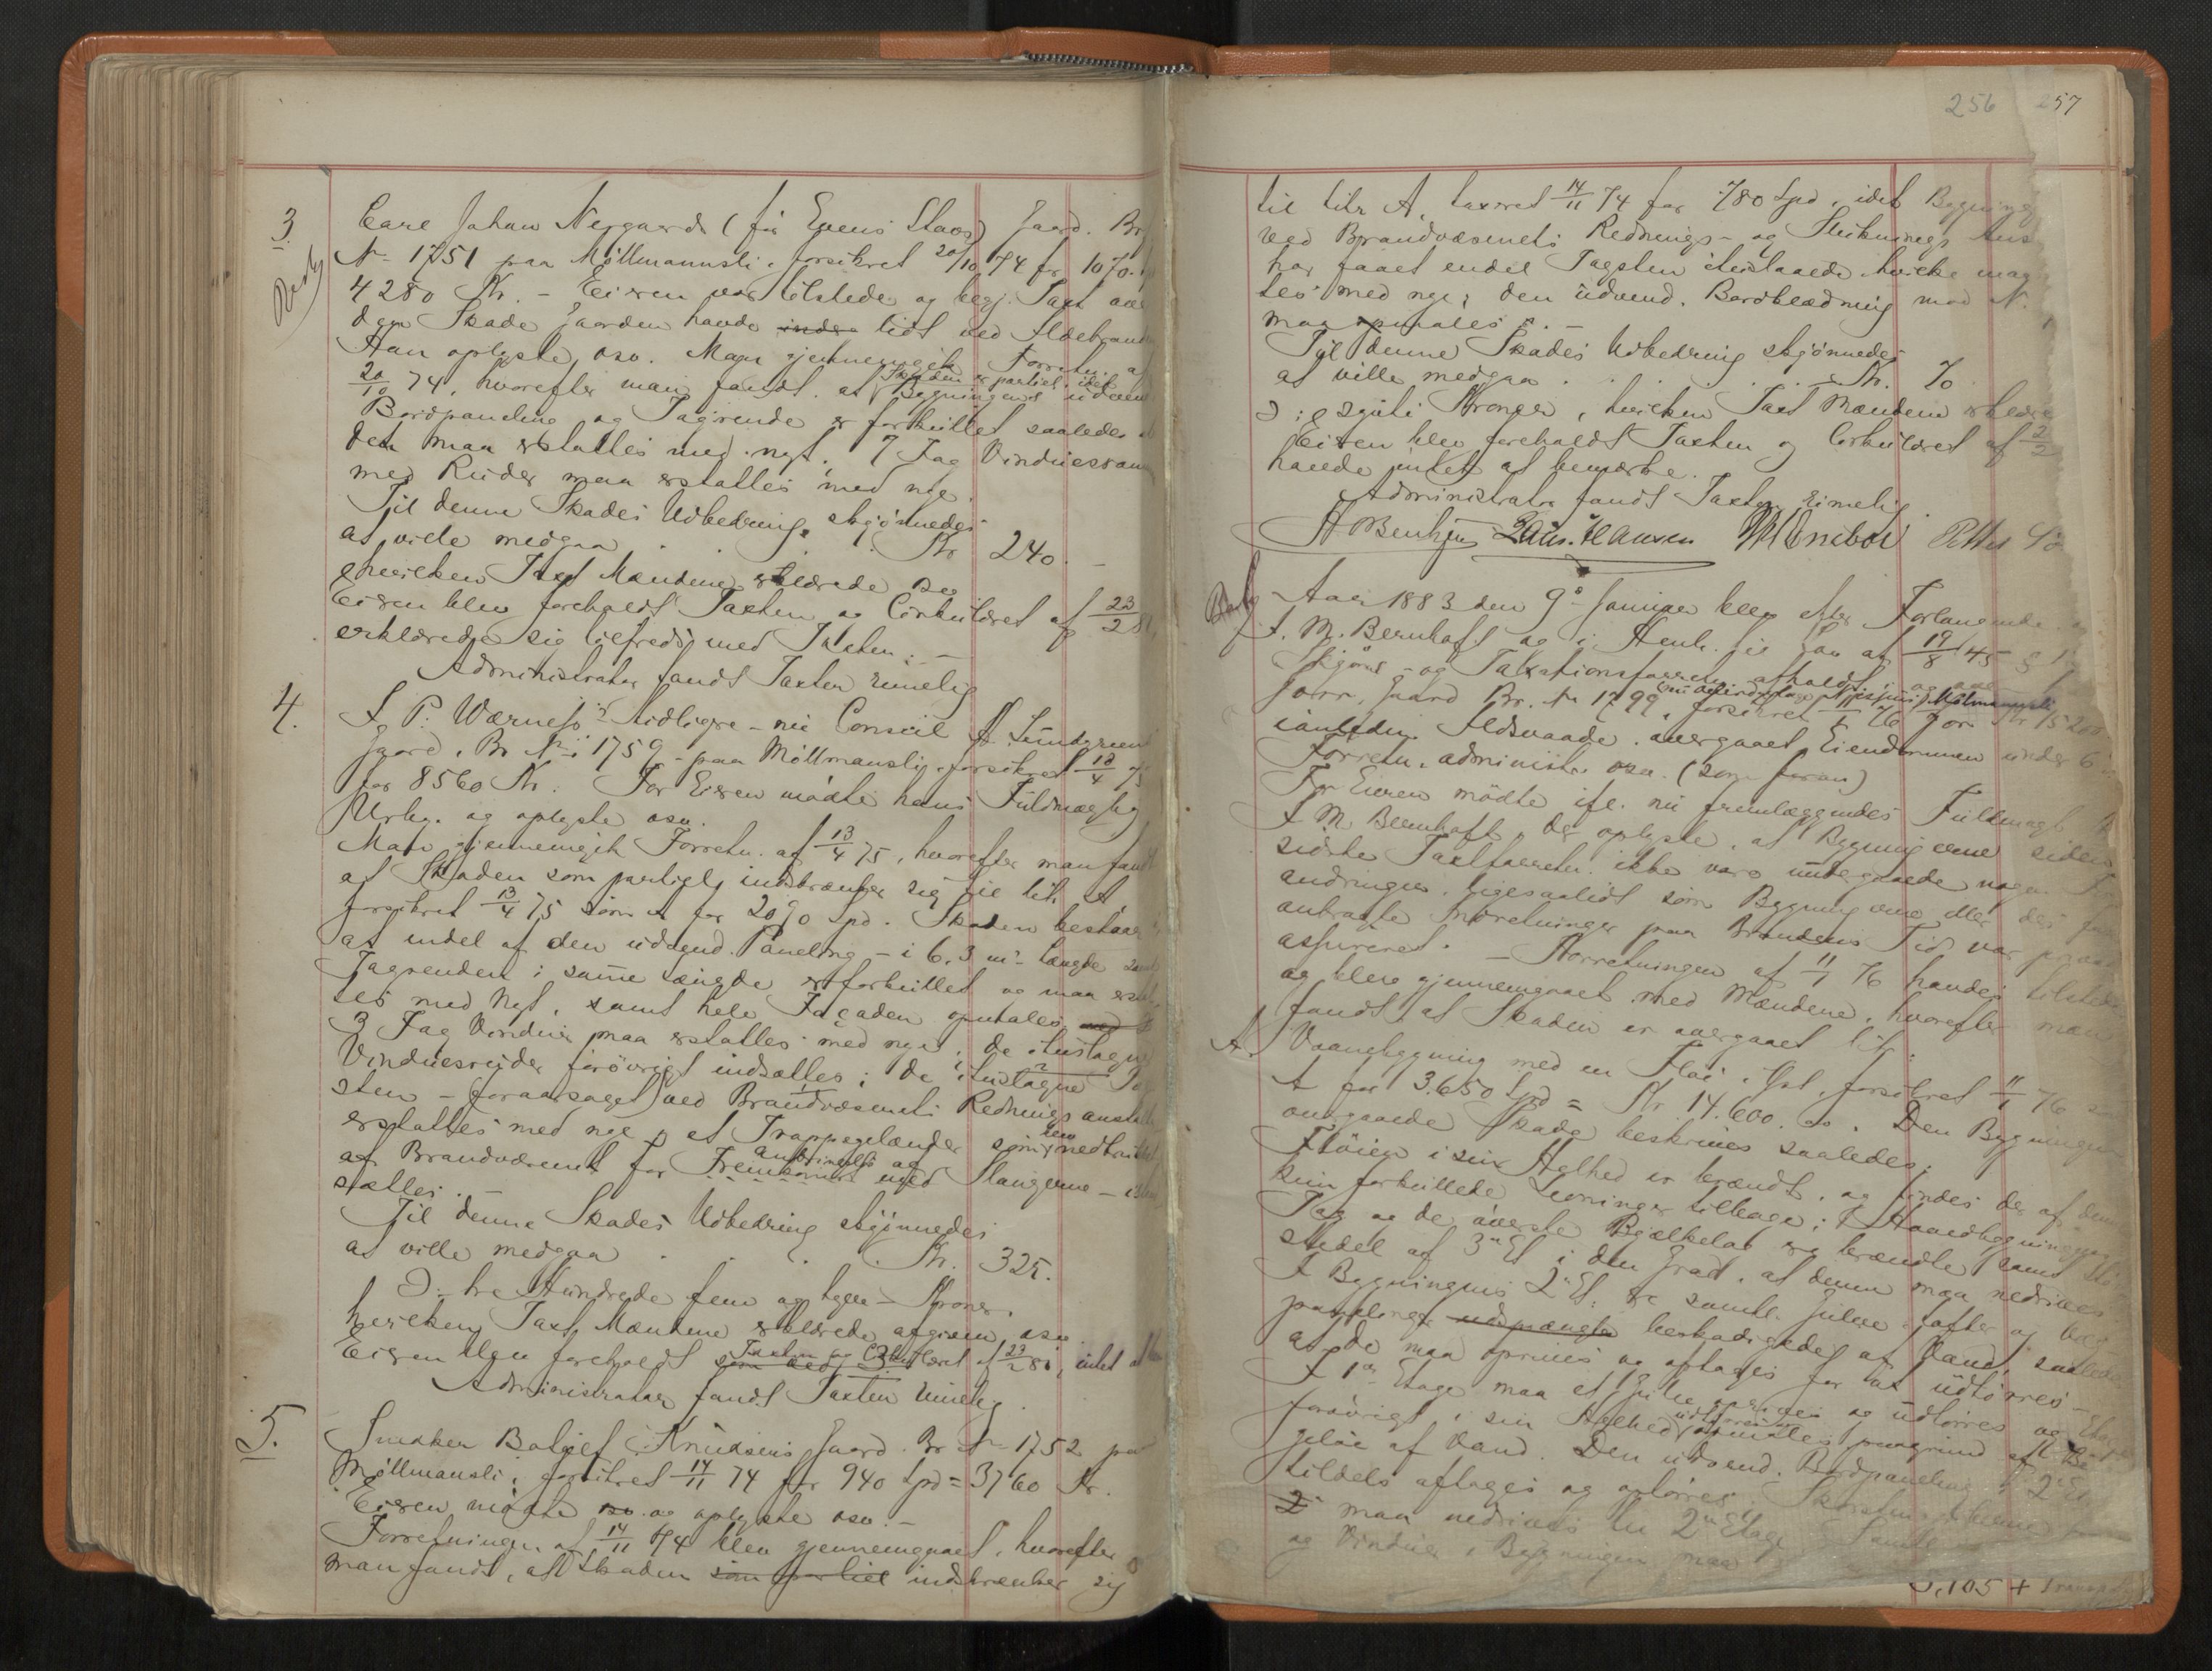 3.
Carl Johan Nergaards (før Evens Staos) Gaard. Br
No 1751 paa Möllmannsli. forsikret 20/10 74 for 1070.
4280 Kr. - Eieren var tilstede og begj. Taxt over
den Skade Gaarden havde lidt ved Ildebranden
Han oplyste, osv. Man gjennemgik Forretn. af
20/10 74, hvorefter man fandt, at Skaden er partiel, idet Bygningens udvend
Bordpaneling og Tagrende er forkullet saaledes at
det maa erstattes med nyt. 7 Fag Vinduesram
med Ruder maa erstattes med nye.
Til denne Skades Udbedring skjönnedes
at ville medgaa . . . Kr 240. -
hvilken Taxt Mændene erklærede osv
Eieren blev foreholdt Taxten og Cirkulæret af 23/2 81,
erklærede sig tilfreds med Taxten. -
Administrator fandt Taxten rimelig
4.
L. P. Wærness's tidligere - nu Consul A. Lundgreens
Gaard, Br No 1759 - paa Möllmansli. forsikret 13/4 75
for 8560 Kr. For Eieren mödte hans Fuldmægtig
Urby. og oplyste osv.
Man gjennemgik Forretn. af 13/4 75, hvorefter man fandt
at Skaden som partiel, indskrænker sig til litr A,
forsikret 13/4 75 som A for 2090 Spd. Skaden bestaar i
at endel af den udvend. Paneling - i 6,3 m's Længde samt
Tagrenden i samme Længde er forkullet og maa erstat
tes med Nyt, samt hele Façaden opmales
3 Fag Vinduer maa erstattes med nye, de itustagne
Vinduesruder forövrigt indsættes; de itustagne Tag
sten - foraarsaget ved Brandvæsenets Rednings anstalter
erstattes med nye, et Trappegelænder som blev nedbrudt
af Brandvæsenet for Anbringelse af Fremkomst med Slangerne - istand
sættes. -
Til denne Skades Udbedring skjönnedes
at ville medgaa . . . Kr. 325.
ɔ: tre Hundrede fem og tyve - Kroner.
hvilken Taxt Mændene erklærede afgiven osv.
Eieren blev foreholdt Taxten og Cirkulæret af 23/2 81, intet at
Administrator fandt Taxten rimelig.
5.
Snedker Botolf Knudsens Gaard. Br No 1752 paa
Möllmansli; forsikret 14/11 74 for 940 Spd = 3760 Kr.
Eieren mödte og oplyste osv. -
Forretningen af 14/11 74 blev gjennemgaaet, hvorefter
man fandt, at Skaden som partiel indskrænker sig
256 257
til litr A, taxeret 14/11 74 for 780 Spd, idet Bygningen
ved Brandvæsenets Rednings- og Sluknings Ans
har faaet endel Tagsten itustaaede hvilke maa
tes med nye; den udvend. Bordklædning mod N.
maa opmales. -
Til denne Skades Udbedring skjönnedes
at ville medgaa . . . Kr. 70
ɔ: sytti Kroner, hvilken Taxt Mændene erklære
Eieren blev foreholdt Taxten og Cirkulæret af
havde intet at bemærke.
Administrator fandt Taxten rimelig.
Laur. Hansen Petter
Aar 1883 den 9de Januar blev efter Forlangende
F. M. Bernhoft og i Henh. til Lov af 19/8 45 § 1
Skjöns- og Taxationsforretn. afholdt
Gaard Br. No 1799, Möllmannsli forsikret 11/1 76 for Kr 15200
ianledn. Ildsvaade overgaaet Eiendommen under 6
Forretn. administr. osv. (som foran)
For Eieren mödte ifl. nu fremlæggendes Fuldmagt
F. M. Bernhoft, der oplyste, at Bygningerne siden
sidste Taxtforretn. ikke vare undergaaede nogen For
andringer, ligesaalidt som Bygningerne eller de
anbragte Indretninger paa Brandens Tid var privat
assureret. - Forretningen af 11/1 76 havdes tilstede
og blev gjennemgaaet med Mændene, hvorefter man
fandt at Skaden er overgaaet litr.
A. Vaanebygning med en Flöi, forsikret 11/1 76
A for 3.650 Spd = Kr 14.600.00. Den Bygningen
overgaaede Skade beskrives saaledes:
Flöien i sin Helhed er brændt, og findes der af denne
kun forkullede Levninger tilbage; I Hovedbygningen
Tag og de överste Bjælkelag ere brændte samt
endel af 3die Et i den Grad, at denne maa nedrives
I Bygningens 2den Et: ere samtl. Gulve Lofter og
paneling beskadigede af Vand, saaledes
at de maa oprives og aftages for at udtörres -
I 1ste Etage maa et Gulv oprives og udtörres og Etagen
forövrigt i sin Helhed udtörres opmales paagrund af
af Vand. Den udvend. Bordpaneling i 2den Et
tildels aftages og optörres. Skorstenspiberne
maa nedrives til 2den Etage
og Vinduer i Bygningen maa
5,105 + Transp